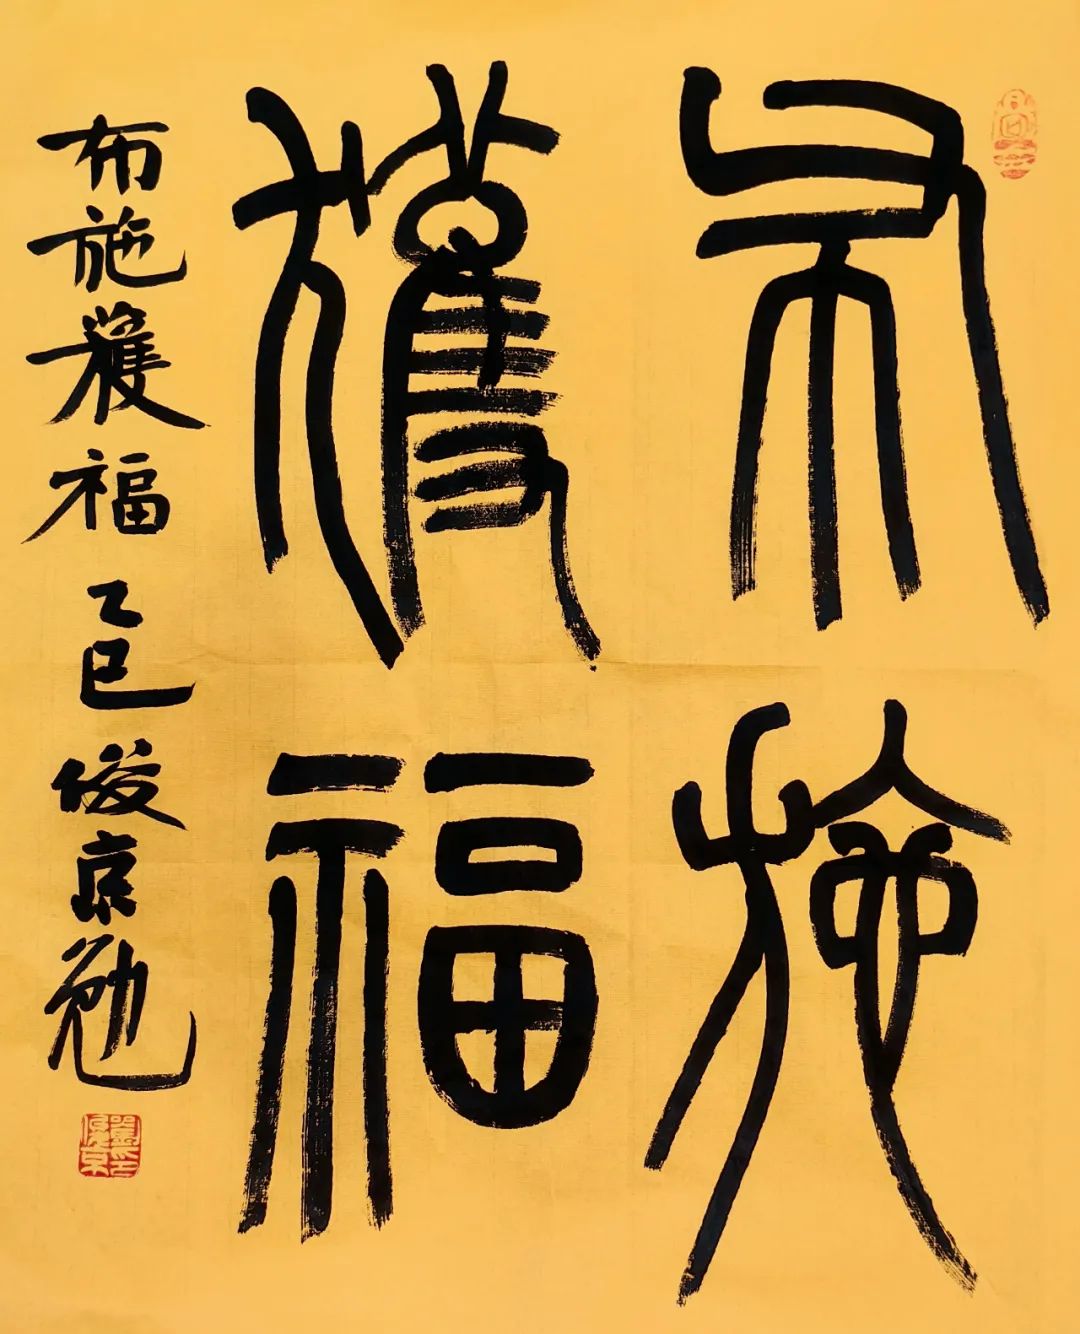 布施
獲福
布施獲福 乙巳 俊京勉